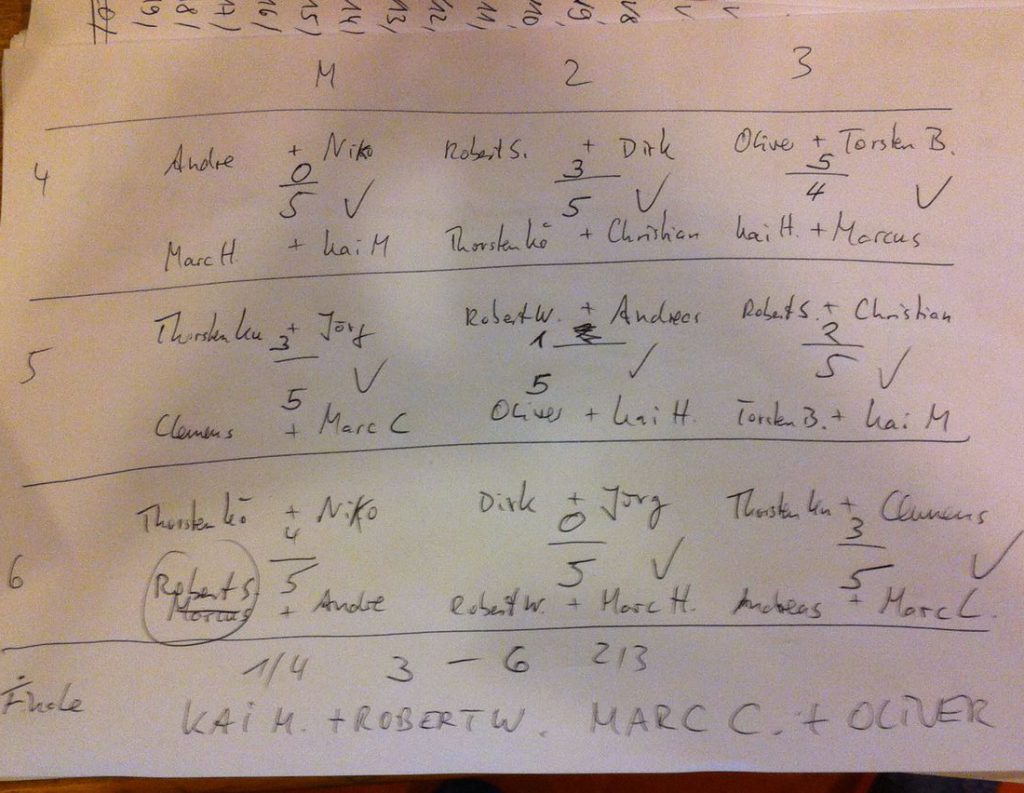 M 2 3
Andre + Niko Robert S. + Dirk Oliver + Torsten B.
4 0 3 5
5 ✓ 5 ✓ 4 ✓
Marc H. + Kai M Thorsten Kö + Christian Kai H. + Marcus
Thorsten Ku + Jörg Robert W. + Andreas Robert S. + Christian
5 3 1 2
5 ✓ 5 ✓ 5 ✓
Clemens + Marc C Oliver + Kai H. Torsten B. + Kai M
Thorsten Kö + Niko Dirk + Jörg Thorsten Ku + Clemens
4 0 3
6 5 5 ✓ 5 ✓
Robert S.
Marcus + Andre Robert W. + Marc H. Andreas + Marc C.
1/4 3 - 6 2/3
Finale KAI M. + ROBERT W. MARC C. + OLIVER